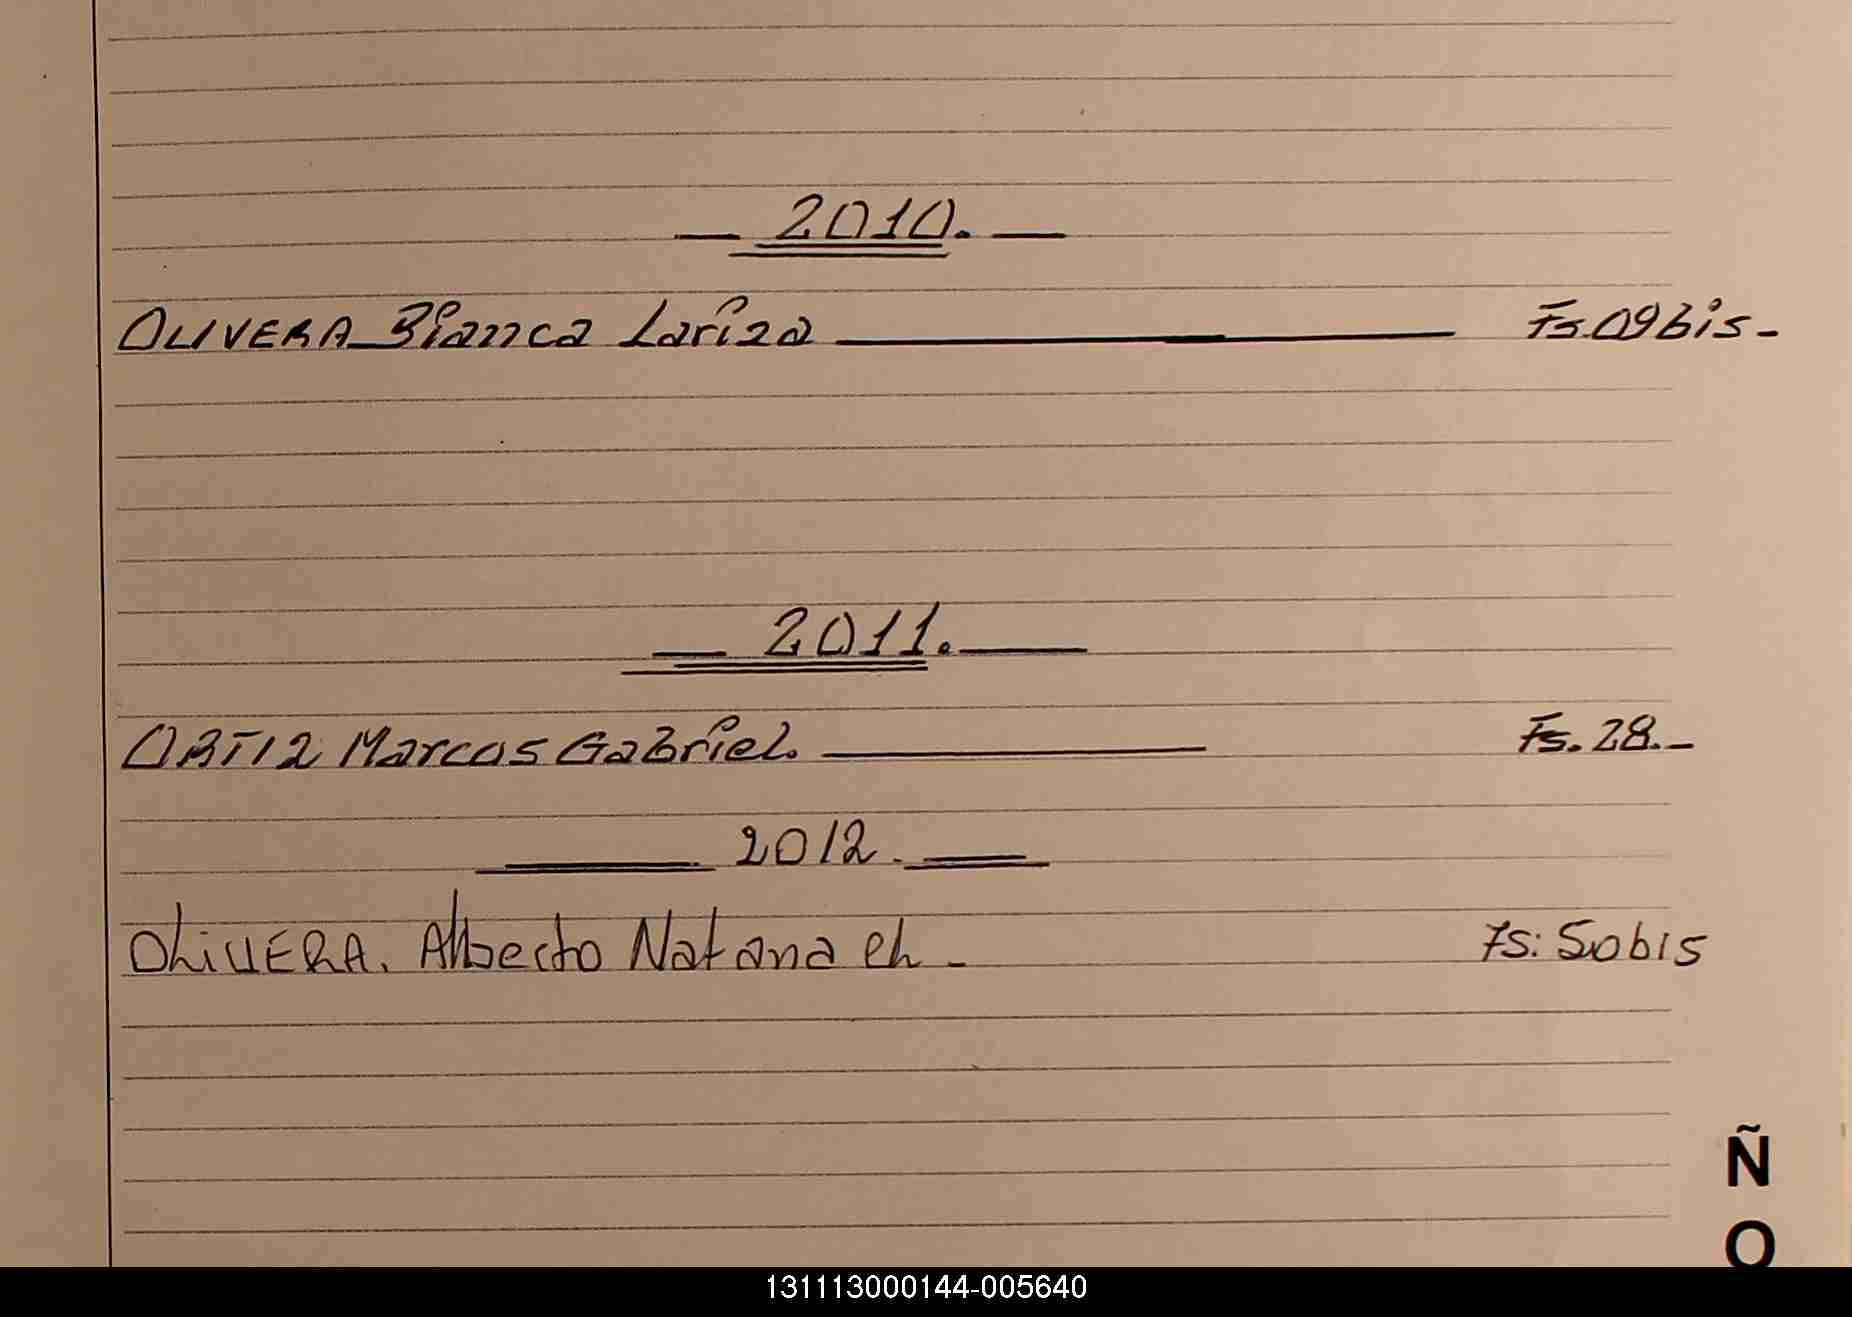 — 2010. —
OLIVERA Bianca Lariza — Fs.09bis-
— 2011. —
ORTIZ Marcos Gabriel. — Fs. 28.-
— 2012. —
OLIVERA. Alberto Natanael - Fs: 50bis
Ñ
O
131113000144-005640